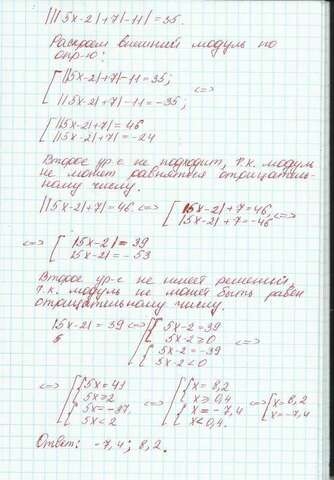 |||5x-2|+7|-11|=35.
Раскроем внешний модуль по
опр-ю:
[ ||5x-2|+7|-11=35;
||5x-2|+7|-11=-35; <=>
[ ||5x-2|+7|=46
||5x-2|+7|=-24
Второе ур-е не подходит, т.к. модуль
не может равняться отрицатель-
ному числу.
||5x-2|+7|=46 <=> [ |5x-2|+7=46,
|5x-2|+7=-46 <=>
<=> [ |5x-2|=39
|5x-2|=-53
Второе ур-е не имеет решений,
т.к. модуль не может быть равен
отрицательному числу.
|5x-2|=39 <=> [ { 5x-2=39
5x-2≥0
{ 5x-2=-39
5x-2<0 <=>
<=> [ { 5x=41
5x≥2
{ 5x=-37
5x<2 <=> [ { x=8,2
x≥0,4
{ x=-7,4
x<0,4. <=> [ x=8,2
x=-7,4
Ответ: -7,4; 8,2.